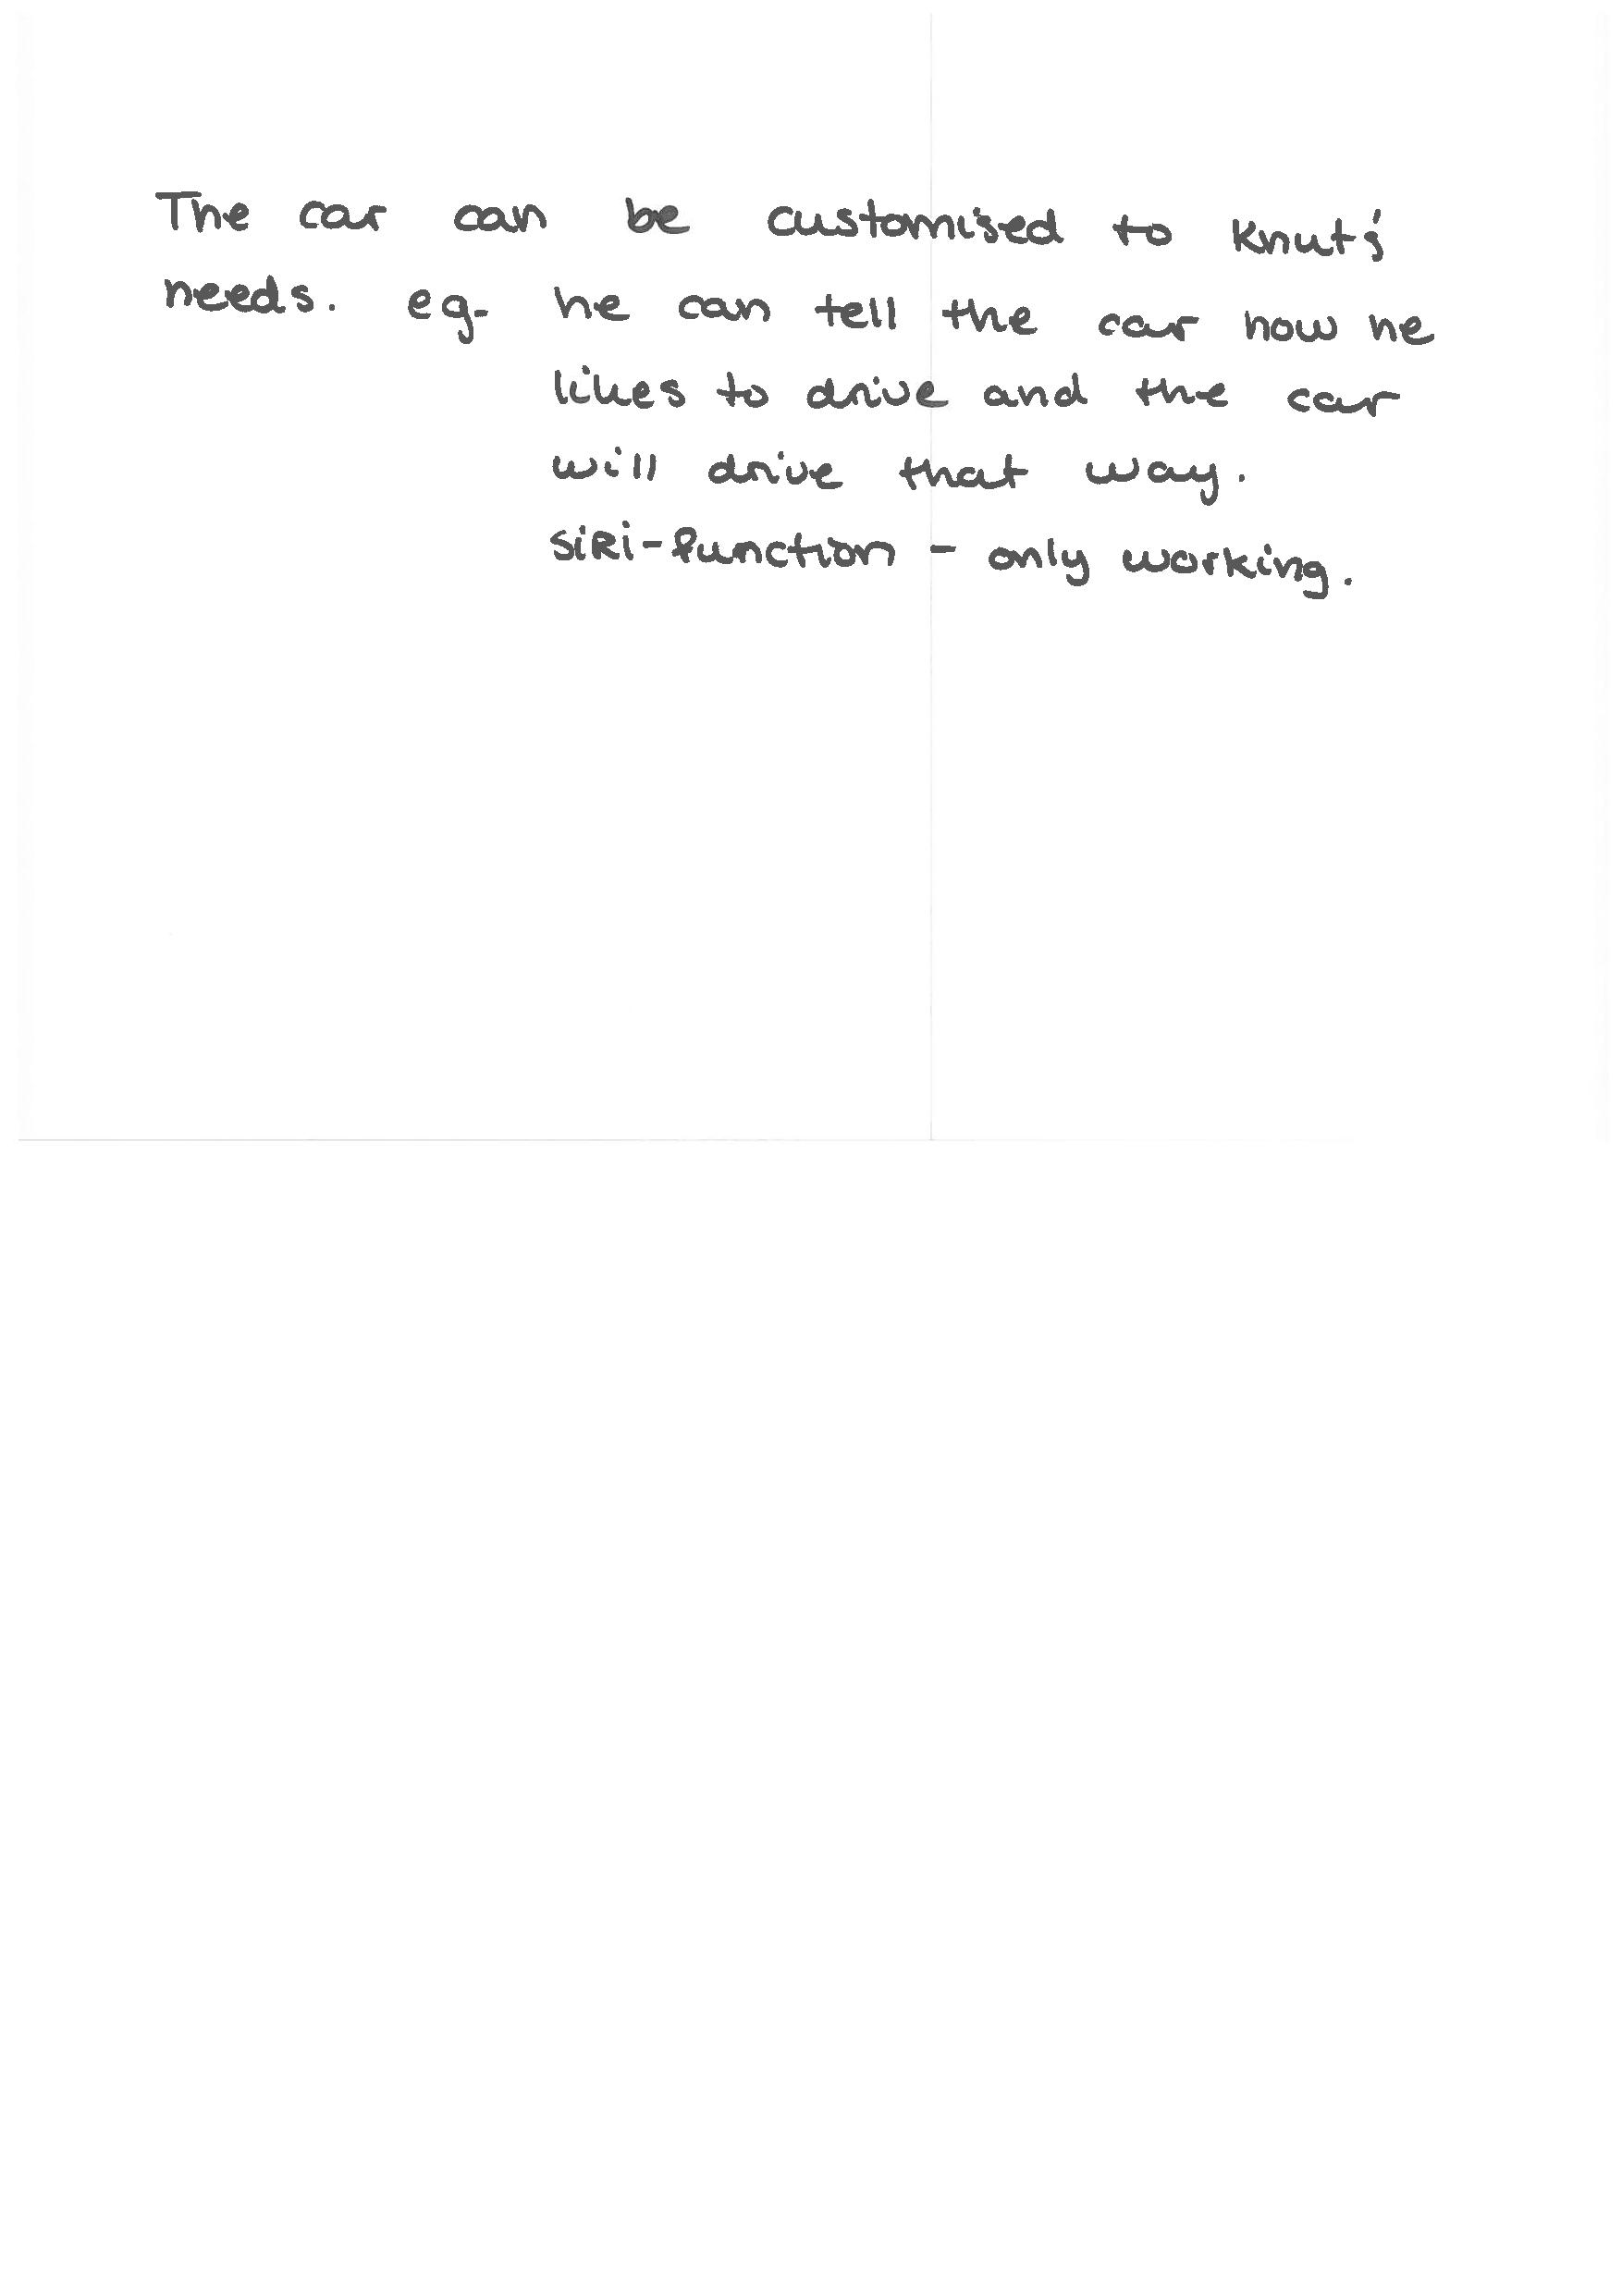 The car can be customised to Knut's
needs. eg. he can tell the car how he
likes to drive and the car
will drive that way.
SiRi-function - only working.